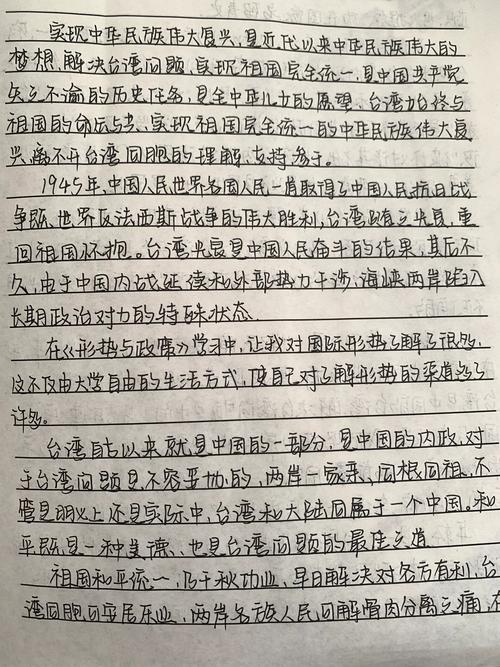 实现中华民族伟大复兴,是近代以来中华民族伟大的
梦想,解决台湾问题、实现祖国完全统一,是中国共产党
矢志不渝的历史任务,是全中华儿女的愿望。台湾
祖国的命运与共、实现祖国完全统一的中华民族伟大复
兴,离不开台湾同胞的理解、支持、参于。
1945年,中国人民世界各国人民一道取得了中国人民抗日战
争、世界反法西斯战争的伟大胜利,台湾光复,重
回祖国怀抱。台湾光复是中国人民奋斗的结果,其后不
久,由于中国内战延续和外部势力干涉,海峡两岸陷入
长期政治对力的特殊状态
在《形势与政策》学习中,让我对国际形势了解了很多,
这不仅由大学自由的生活方式,使自己对了解形势的渠道多了
许多。
台湾自古以来就是中国的一部分,是中国的内政,对
于台湾问题是不容,的,两岸一家亲、同根同祖,不
管是明义上还是实际中,台湾和大陆同属于一个中国。和
平是一种美德、也是台湾问题的最佳之道
祖国和平统一,乃千秋功业,早日解决对各方有利,台
湾同胞可安居乐业,两岸各族人民可解骨肉分离之痛,在